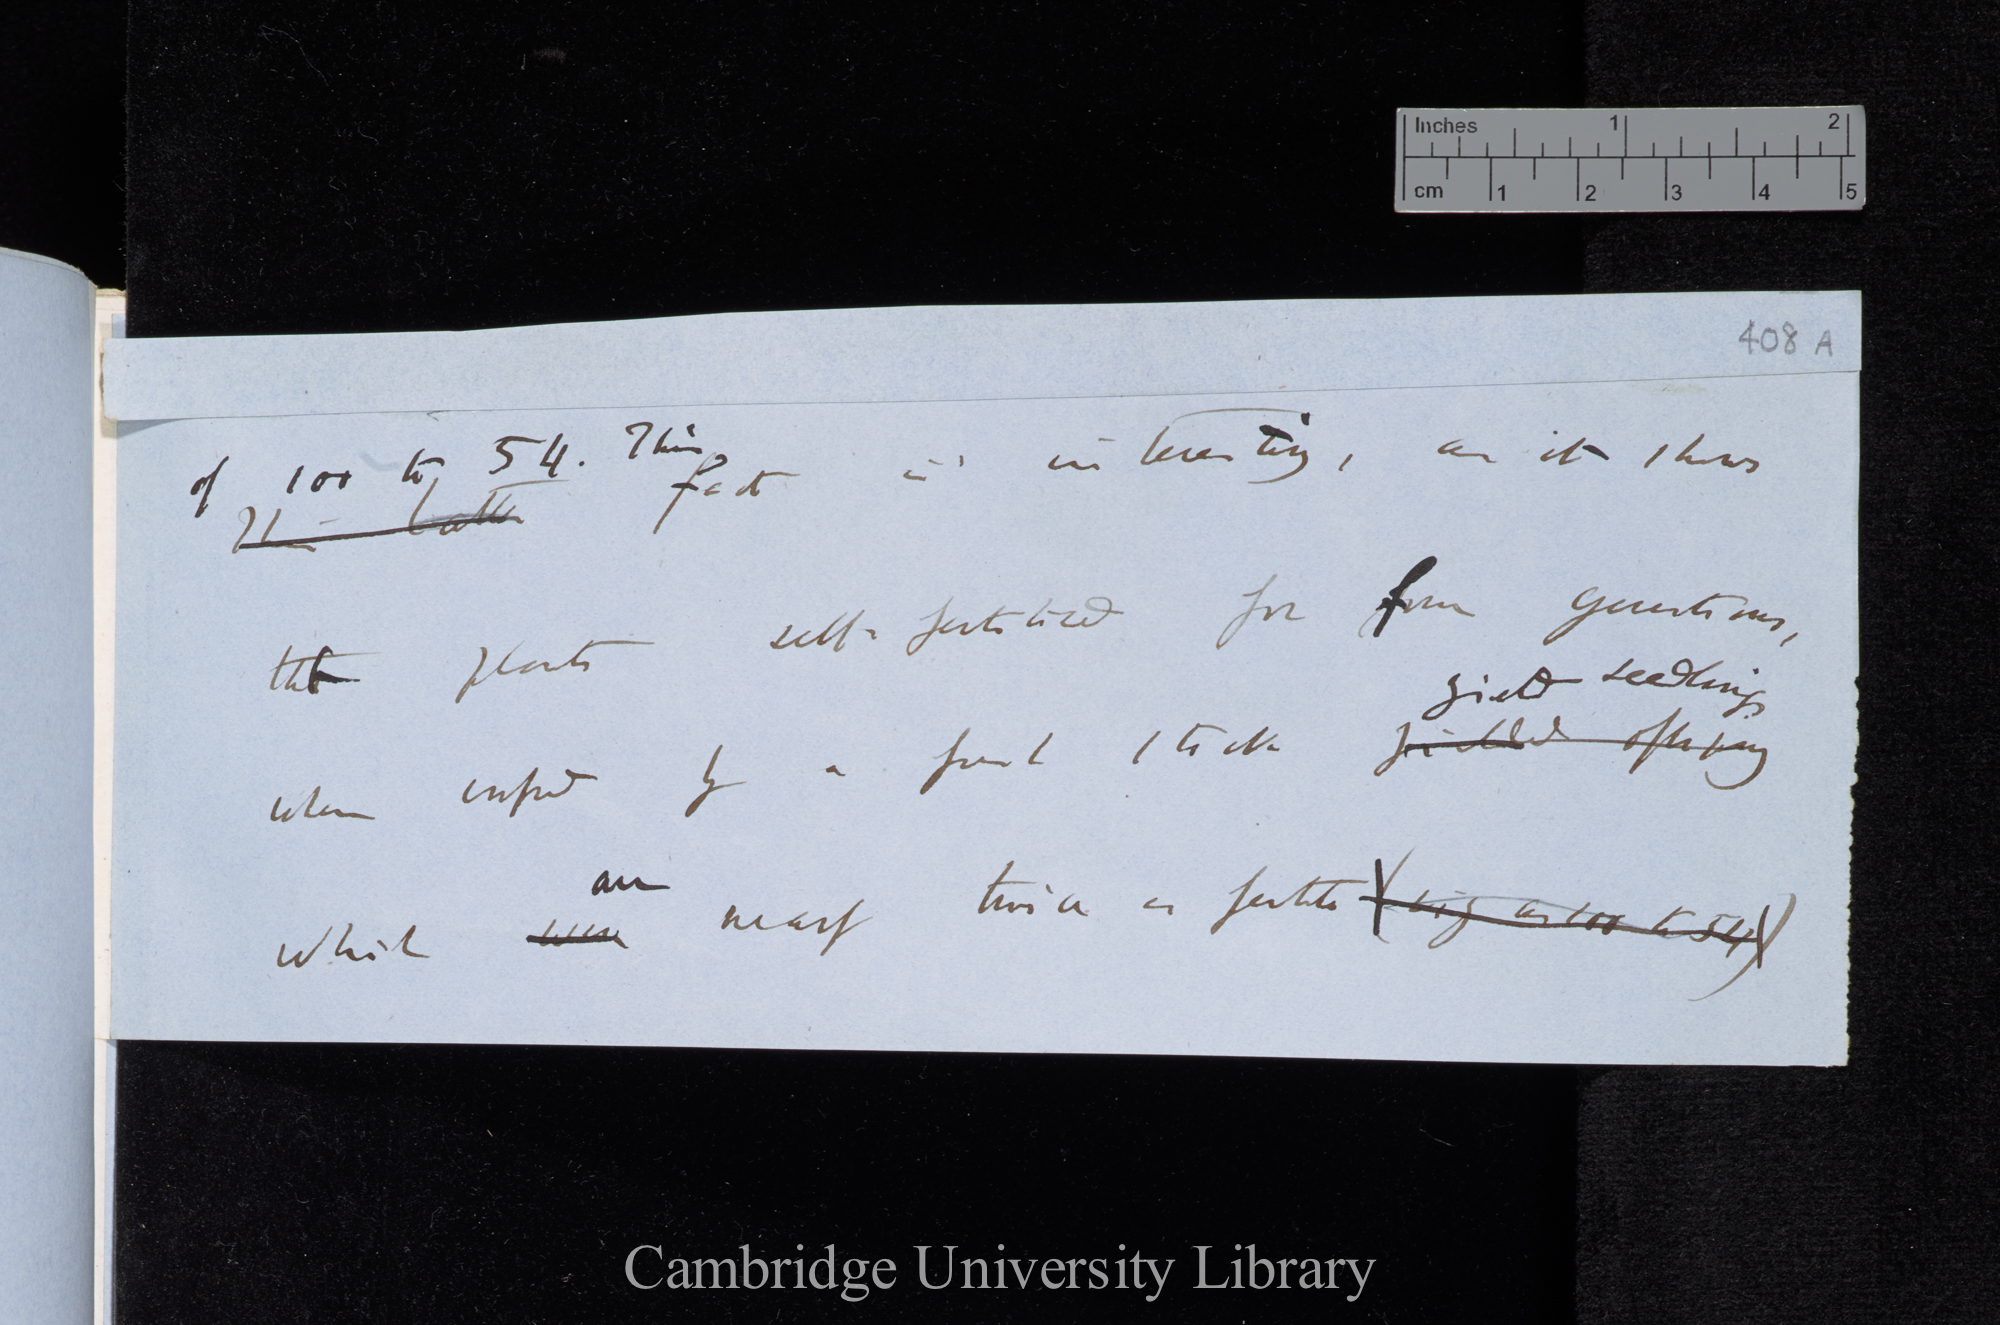 Inches 1 2
cm 1 2 3 4 5
408 A
of 100 to 54. This
This latter fact is interesting, as it shows
that plants self-fertilised for four generations,
yield seedlings
when crossed by a fresh stock yielded offspring
are
which were nearly twice as fertile (viz as 100 to 54)
Cambridge University Library